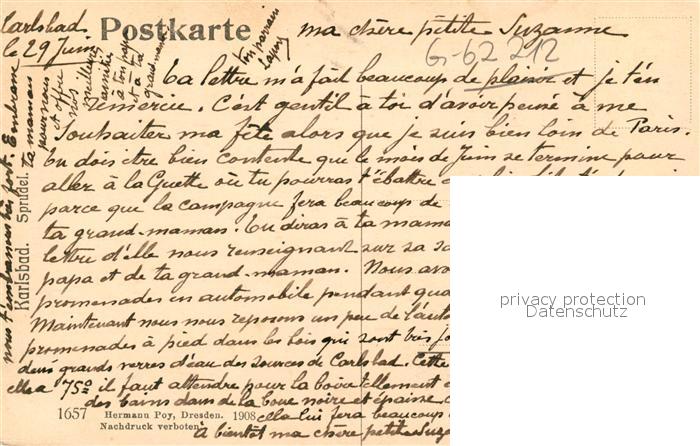 Carlsbad.
le 29 Juin
Postkarte
ma chère petite Suzanne
G-62 212
Ta lettre m'a fait beaucoup de plaisir et je t'en
remercie. C'est gentil à toi d'avoir pensé à me
souhaiter ma fête alors que je suis bien loin de Paris.
Tu dois être bien contente que le mois de Juin se termine pour
aller à la Guette où tu pourras t'ébattre
parce que la campagne fera beaucoup de
ta grand-maman. Tu diras à ta mama
lettre d'elle nous renseignant sur sa
papa et de ta grand-maman. Nous
promenades en automobile pendant
Maintenant nous nous reposons un peu de l'auto
promenades à pied dans les bois qui sont très
deux grands verres d'eau des sources de Carlsbad. Cette
elle a 75° il faut attendre pour la boire tellement
des bains dans de la boue noire et épaisse
elle lui fera beaucoup
à bientôt ma chère petite Suza
ta maman
pour nous
et offre
nos
meilleures
amitiés
à ton papa
et à ta
grand-maman
ton parrain
nous t'embrassons très fort. Embrasse
Karlsbad. Sprudel.
1657 Hermann Poy, Dresden. 1908
Nachdruck verboten
privacy protection
Datenschutz